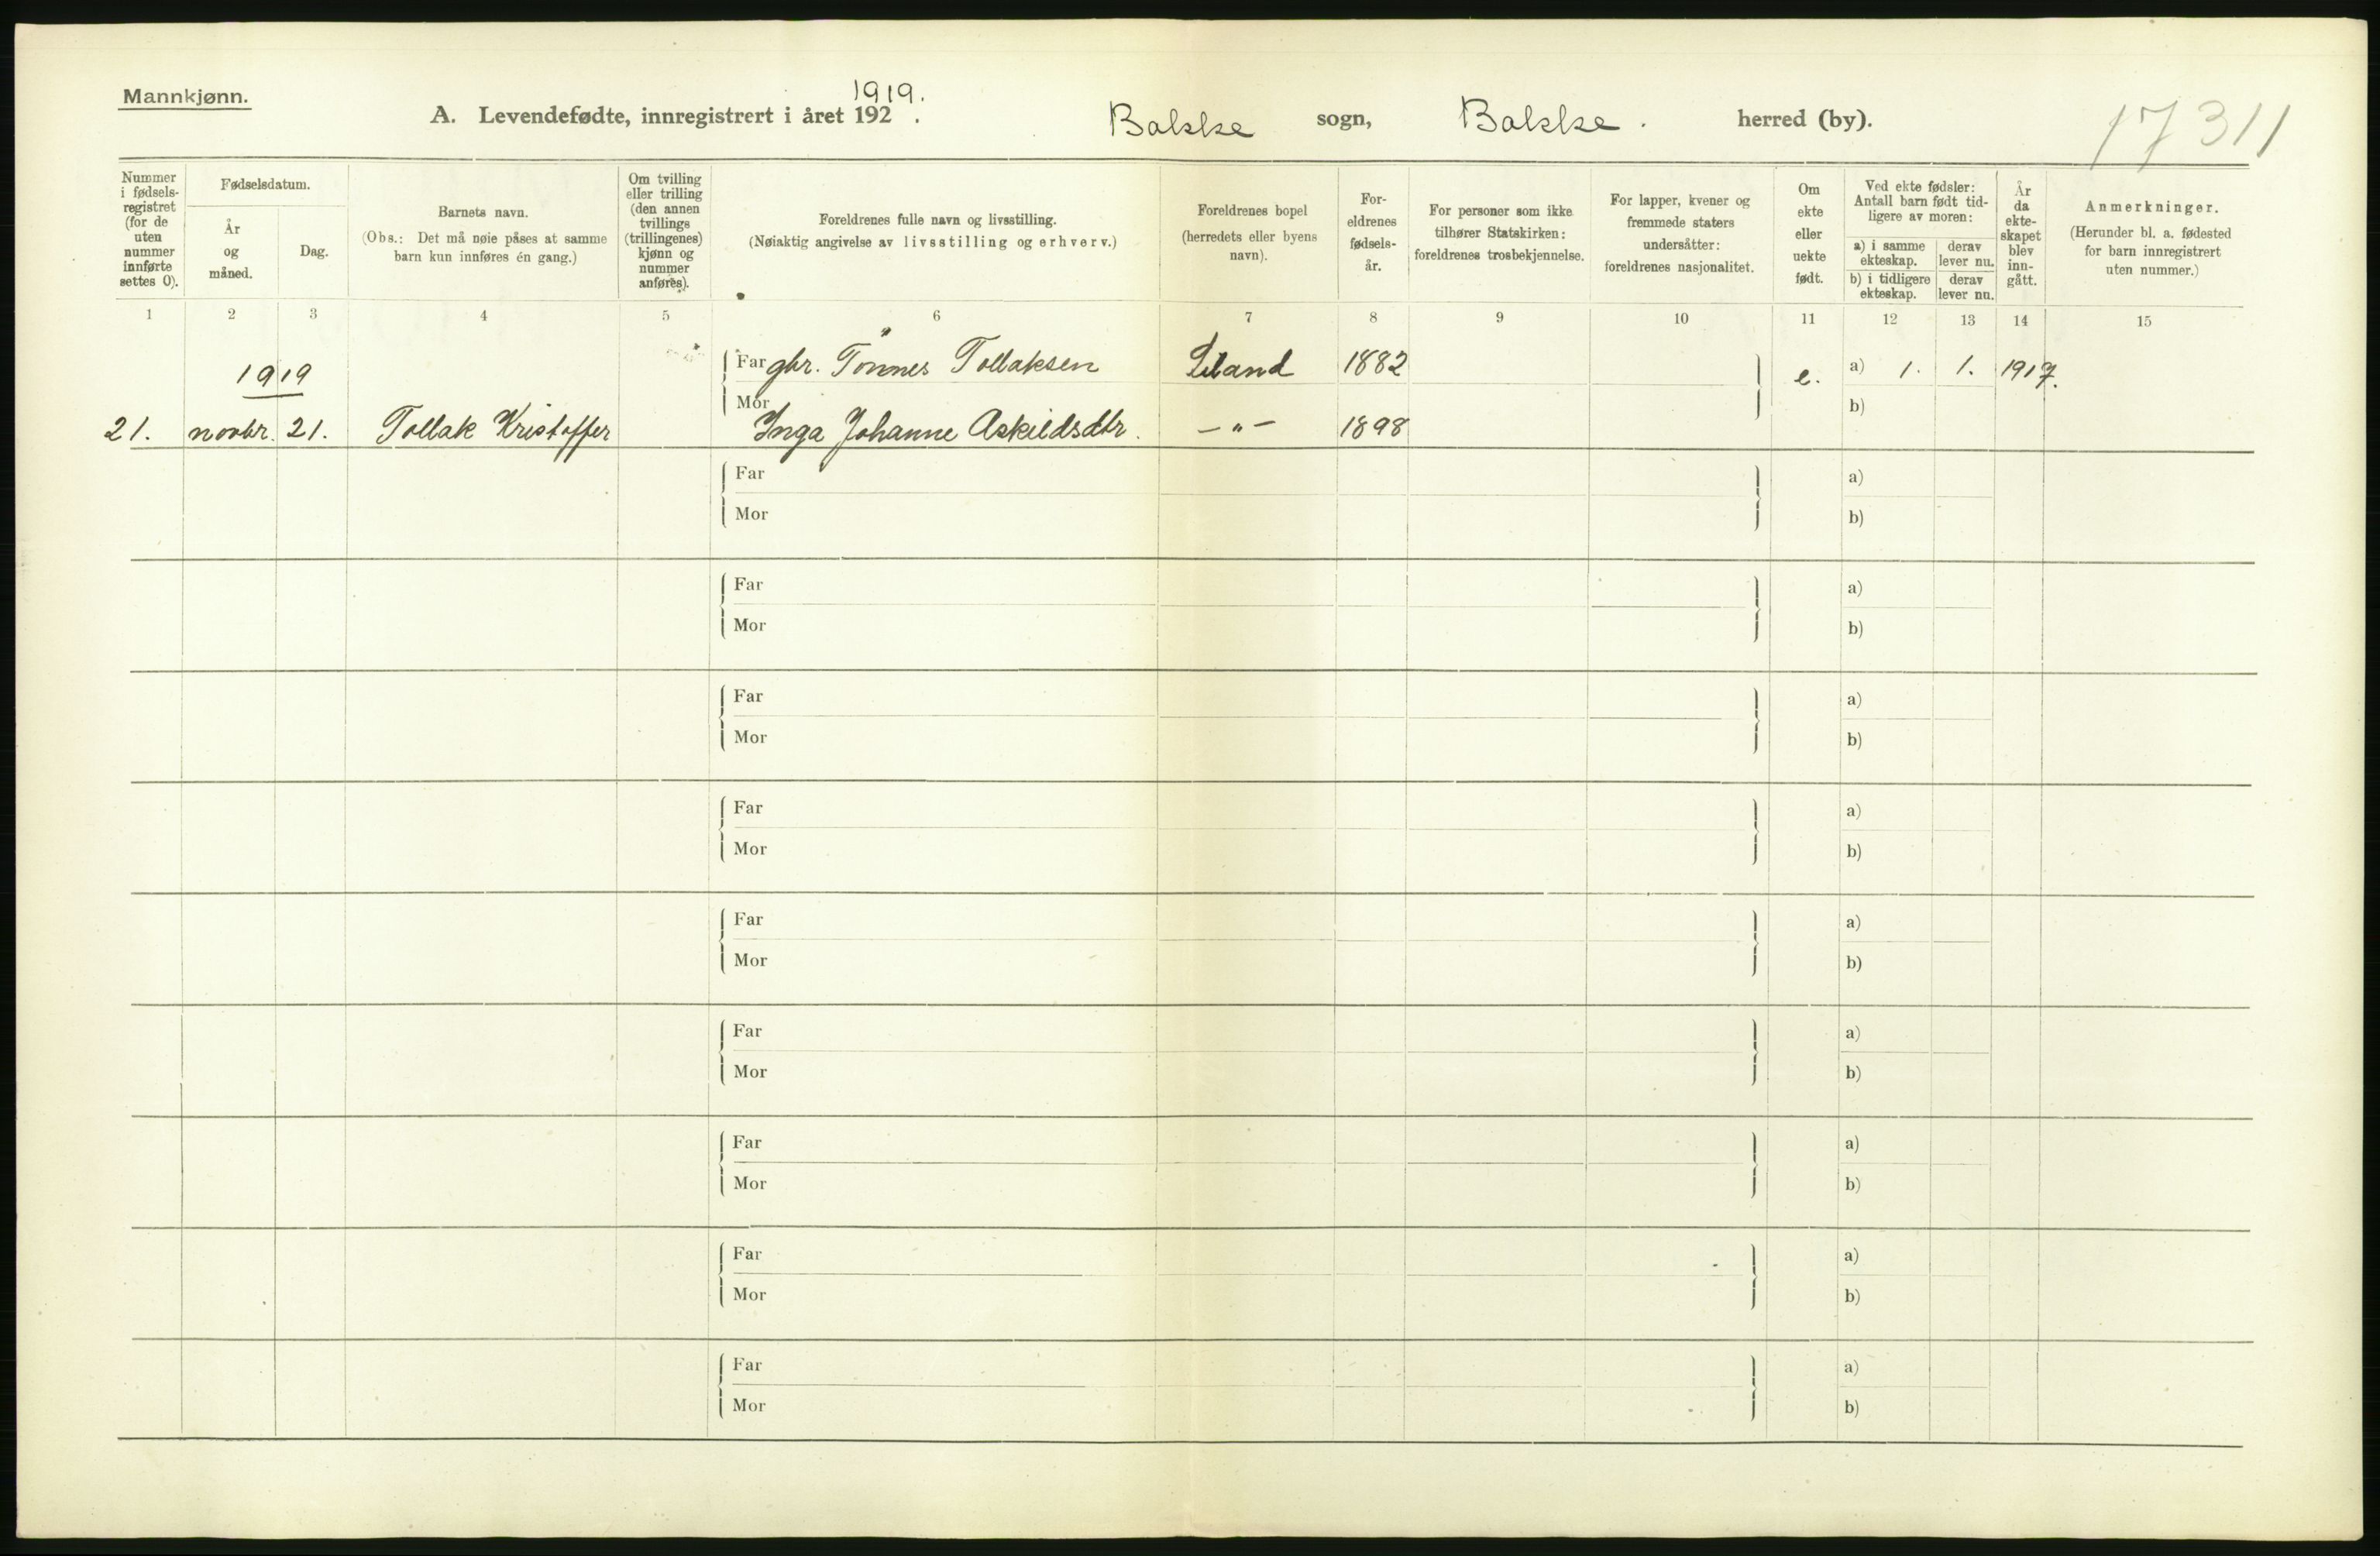 Mannkjønn.
A. Levendefødte, innregistrert i året 192 .
1919.
Bakke sogn, Bakke. herred (by).
17311
Nummer
i fødsels-
registret
(for de
uten
nummer
innførte
settes 0).
Fødselsdatum.
År
og
måned.
Dag.
Barnets navn.
(Obs.: Det må nøie påses at samme
barn kun innføres én gang.)
Om tvilling
eller trilling
(den annen
tvillings
(trillingenes)
kjønn og
nummer
anføres).
Foreldrenes fulle navn og livsstilling.
(Nøiaktig angivelse av livsstilling og erhverv.)
Foreldrenes bopel
(herredets eller byens
navn).
For-
eldrenes
fødsels-
år.
For personer som ikke
tilhører Statskirken:
foreldrenes trosbekjennelse.
For lapper, kvener og
fremmede staters
undersåtter:
foreldrenes nasjonalitet.
Om
ekte
eller
uekte
født.
Ved ekte fødsler:
Antall barn født tid-
ligere av moren:
a) i samme
ekteskap.
derav
lever nu.
b) i tidligere
ekteskap.
derav
lever nu.
År
da
ekte-
skapet
blev
inn-
gått.
Anmerkninger.
(Herunder bl. a. fødested
for barn innregistrert
uten nummer.)
1 2 3 4 5 6 7 8 9 10 11 12 13 14 15
1919
Far gbr. Tønnes Tollaksen Liland 1882 e. a) 1. 1. 1917.
Mor b)
21. novbr. 21. Tollak Kristoffer Inga Johanne Askildsdtr. -"- 1898
Far a)
Mor b)
Far a)
Mor b)
Far a)
Mor b)
Far a)
Mor b)
Far a)
Mor b)
Far a)
Mor b)
Far a)
Mor b)
Far a)
Mor b)
Far a)
Mor b)